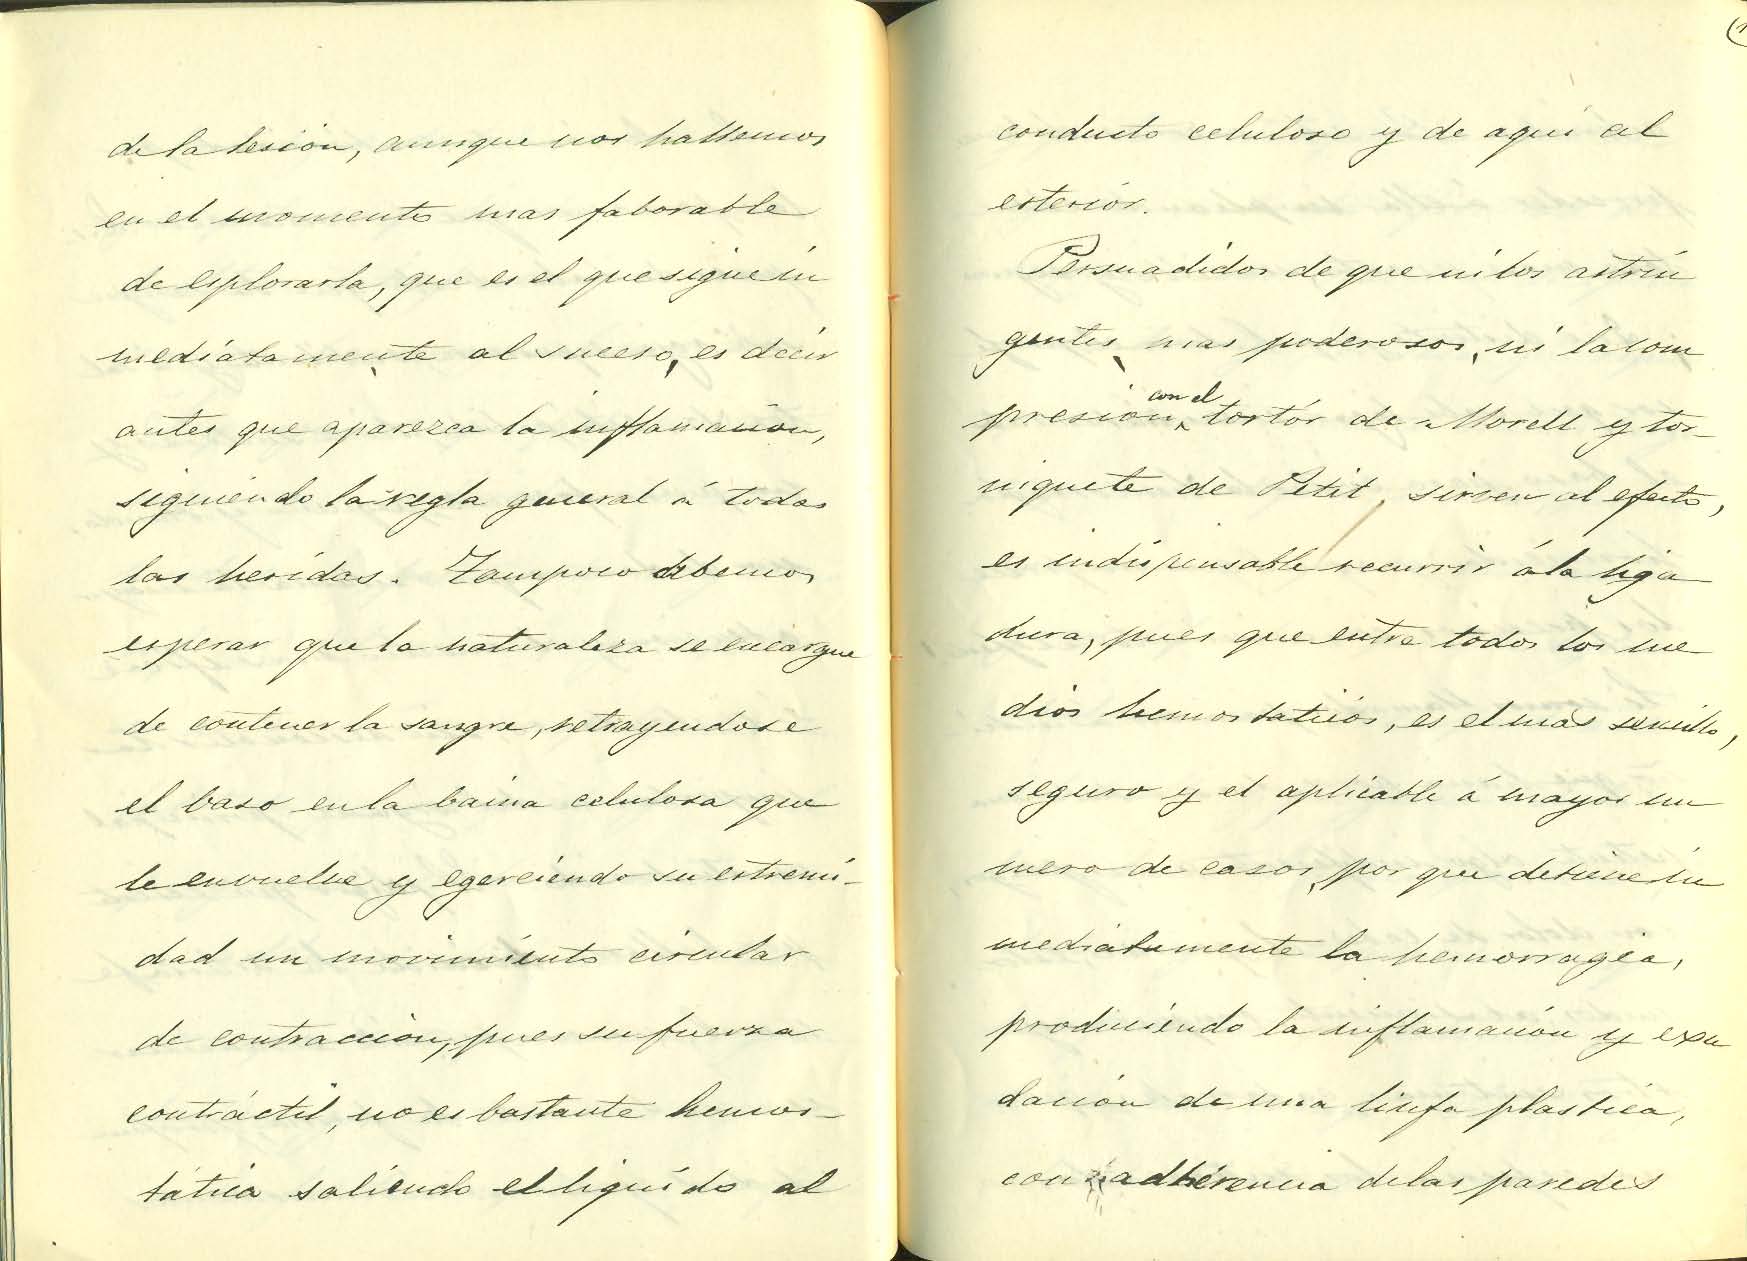 de la lesion, aunque nos hallemos
en el momento mas faborable
de esplorarla, que es el que sigue in
mediatamente al suceso, es decir
antes que aparezca la inflamacion,
siguiendo la regla general á todas
las heridas. Tampoco debemos
esperar que la naturaleza se encargue
de contener la sangre, retrayendose
el baso en la baina celulosa que
le envuelve y egerciendo su estremi-
dad un movimiento circular
de contraccion, pues su fuerza
contráctil, no es bastante hemos-
tática saliendo el liquido al
conducto celuloso y de aqui al
esterior.
Persuadidos de que ni los astrin
gentes mas poderosos, ni la com
presion con el tortór de Morell y tor-
niquete de Petit, sirven al efecto,
es indispensable recurrir á la liga
dura, pues que entre todos los me
dios hemostaticos, es el mas sencillo,
seguro y el aplicable á mayor nu
mero de casos, por que detiene in
mediatamente la hemorragia,
produciendo la inflamacion y exu
dacion de una linfa plastica,
con adherencia de las paredes